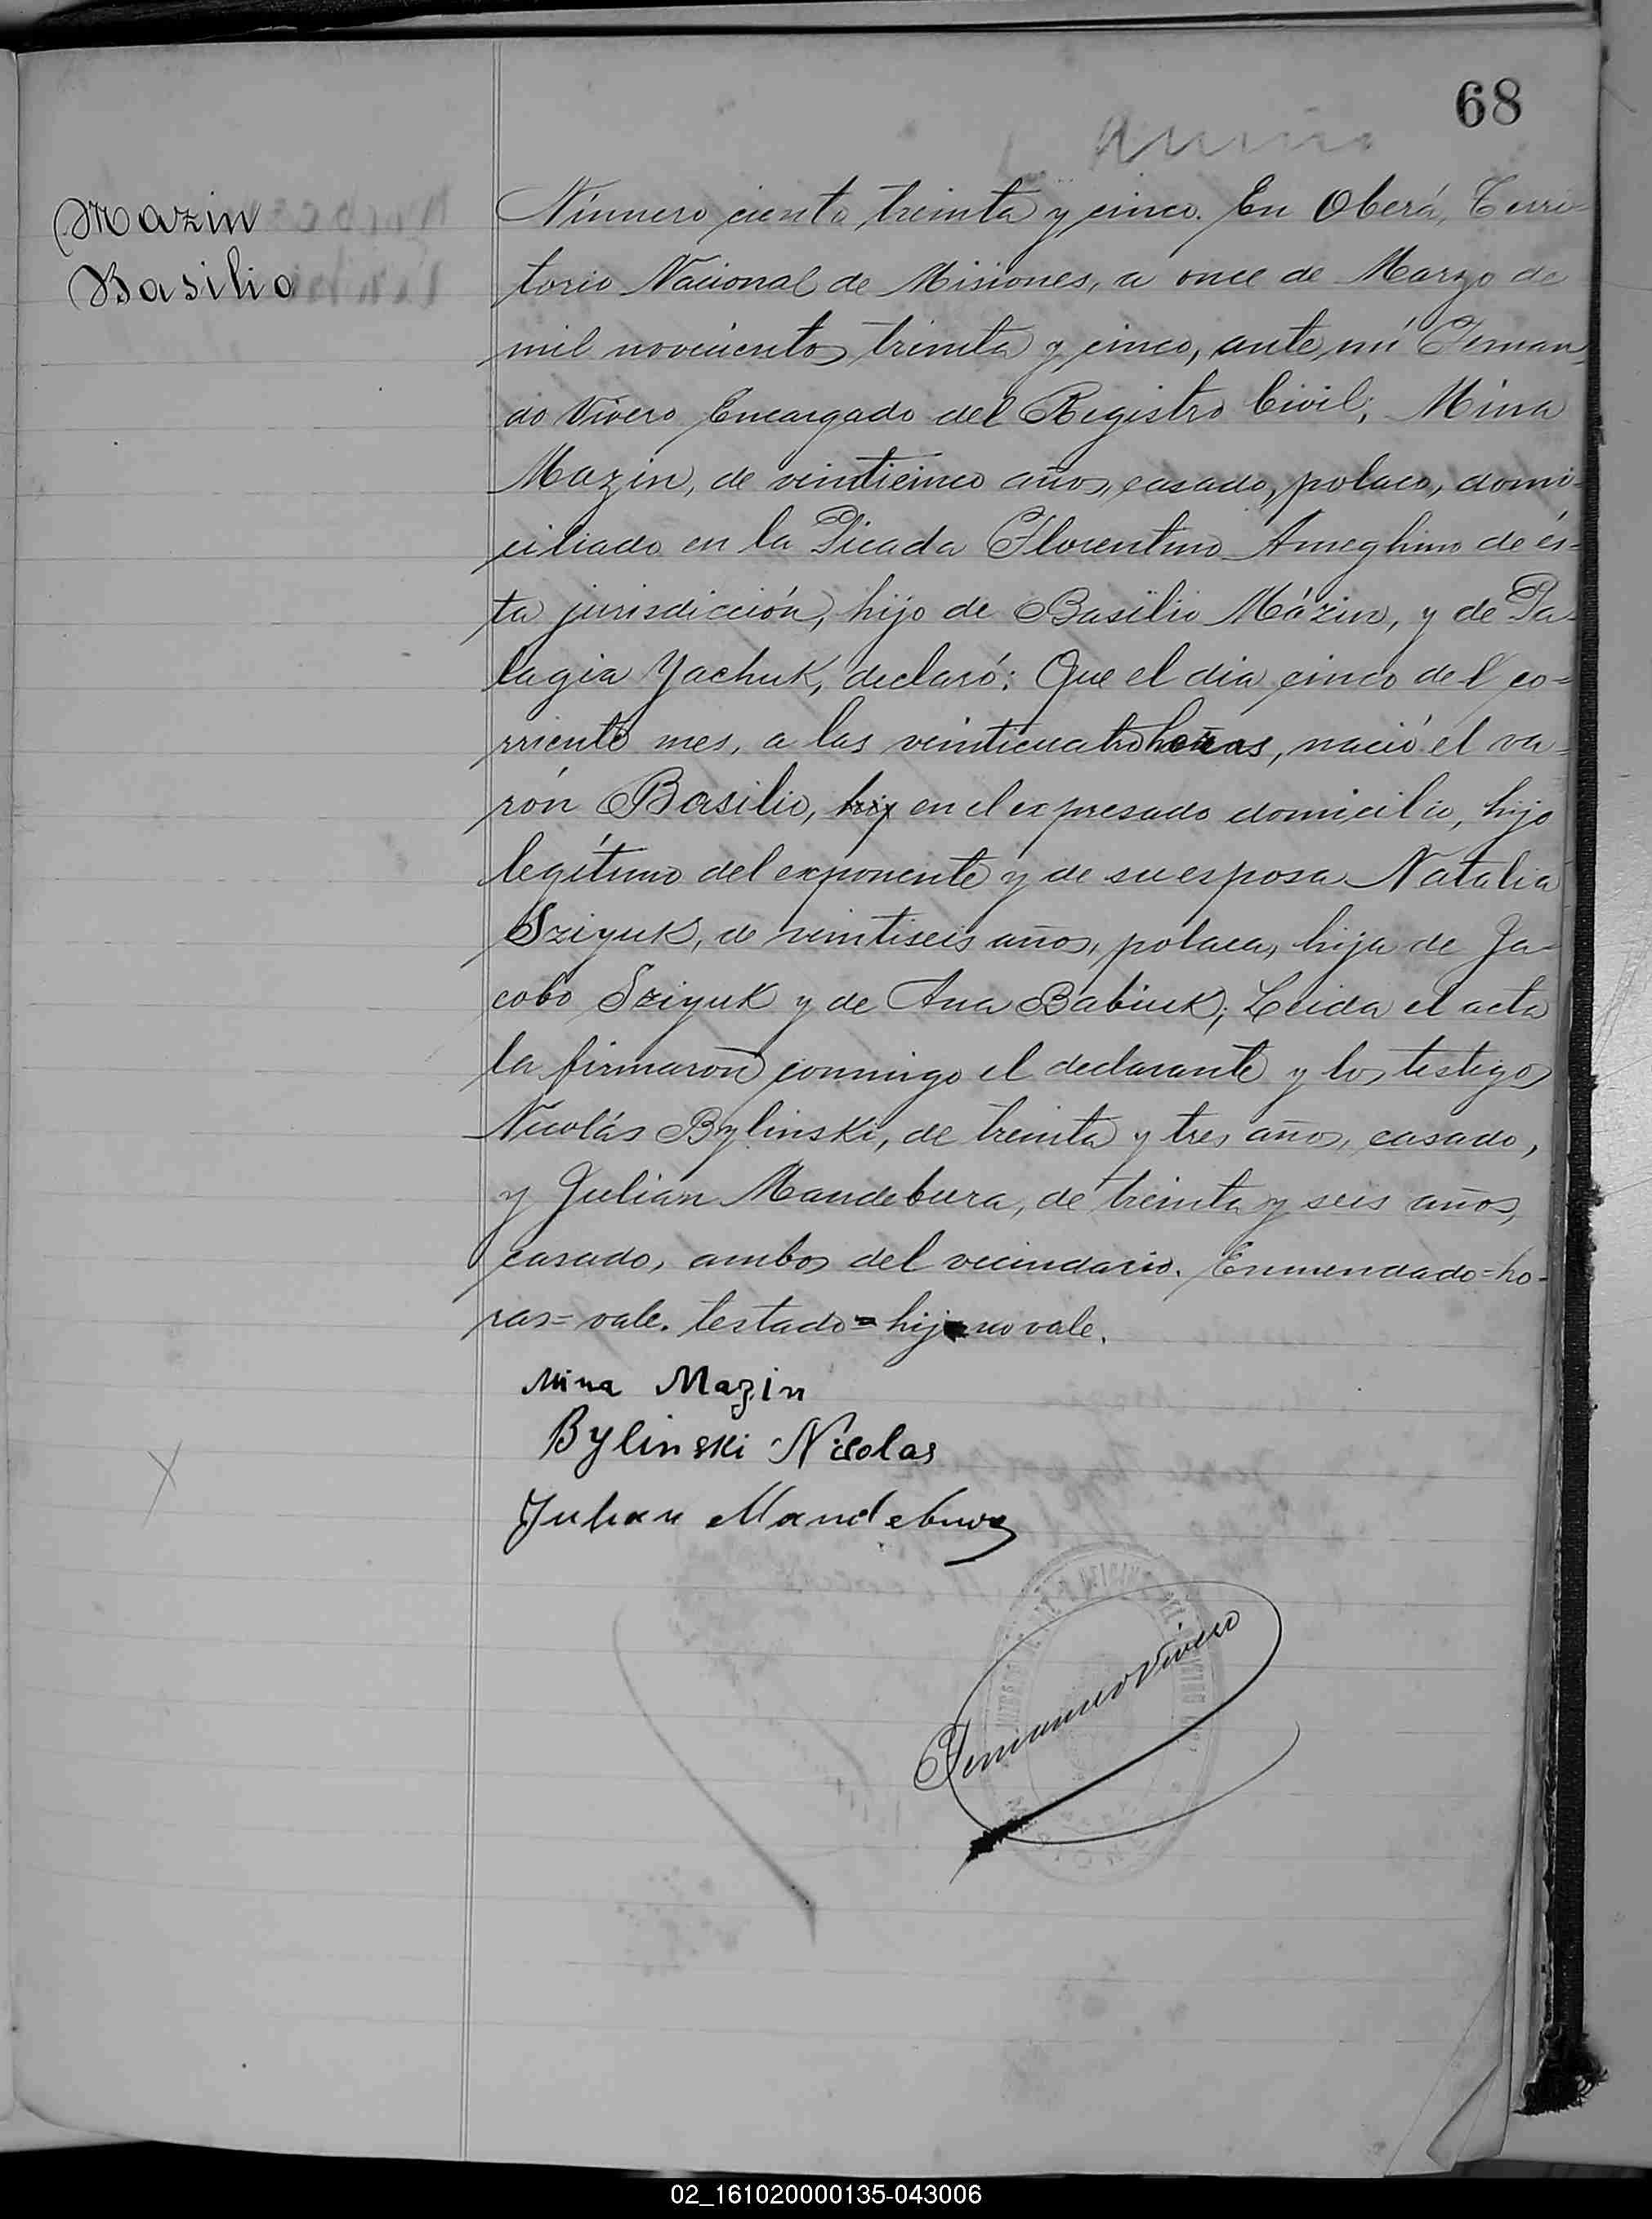 68
Mazin
Basilio
Número ciento treinta y cinco. En Oberá, Terri-
torio Nacional de Misiones, a once de Marzo de
mil novecientos treinta y cinco, ante mí Fernan-
do Vivero Encargado del Registro Civil; Mina
Mazin, de veinticinco años, casado, polaco, domi-
ciliado en la Picada Florentino Ameghino de és-
ta jurisdicción, hijo de Basilio Mázin, y de Pa-
lagia Yachuk, declaró: Que el dia cinco del co-
rriente mes, a las veinticuatro horas, nació el va-
rón Basilio, hij en el expresado domicilio, hijo
legítimo del exponente y de su esposa Natalia
Sziyuk, de veintiseis años, polaca, hija de Ja-
cobo Sziyuk y de Ana Babiuk; Leida el acta
la firmaron conmigo el declarante y los testigos
Nicolás Bylinski, de treinta y tres años, casado,
y Julian Mandebura, de treinta y seis años,
casado, ambos del vecindario. Enmendado=ho-
ras=vale. testado=hij no vale.
Mina Mazin
Bylinski Nicolas
Julian Mandebura
Fernando Vivero
02_161020000135-043006